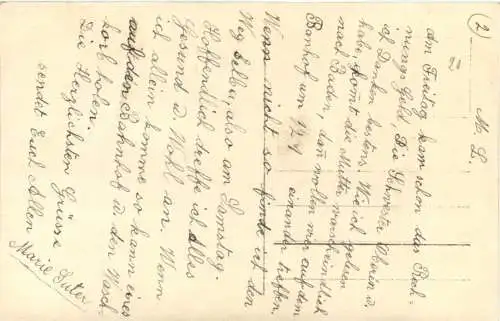 (2)
2
M. L.
Am Freitag kam schon das Rech-
nungs Geld. Die Schwester Oberin u.
ich Danken bestens. Wie ich gelesen
habe, komt die Mutter warscheindlich
nach Baden, dañ wollen wir auf dem
Banhof um 12 einander treffen.
Wenn nicht so finde ich den
Weg selber, also am Samstag.
Hoffendlich treffe ich Alles
Gesund u. Wohl an. Wenn
ich allein komme so kann eines
auf den Bahnhof u. den Wasch-
korb holen.
Die Herzlichsten Grüsse
sendet Euch Allen
Marie Suter